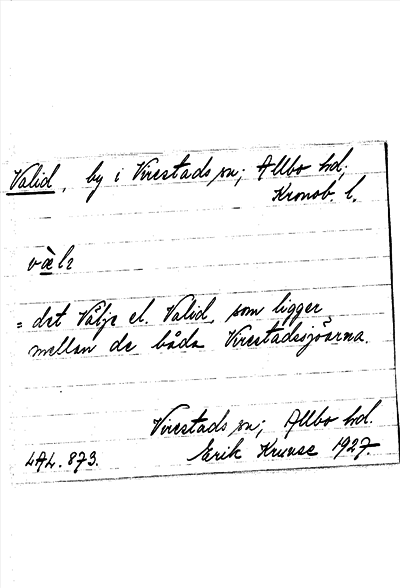 Valid, by i Virestads sn; Allbo hd;
Kronob. l.
vælɩ
= det Välje el. Valid, som ligger
mellan de båda Virestadssjöarna.
Virestads sn; Allbo hd.
LAL. 873. Erik Kruuse 1927.